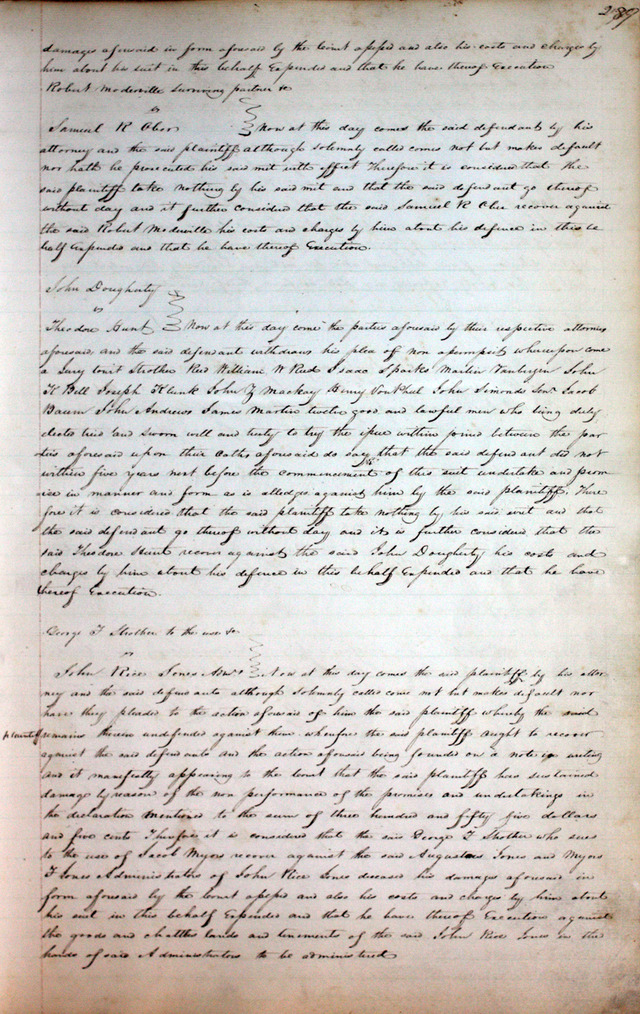 289
damages aforesaid in form aforesaid by the Court assessed and also his costs and charges by
him about his suit in this behalf Expended and that he have thereof Execution
Robert Moderville surviving partner &c
vs
Samuel R Ober Now at this day comes the said defendant by his
attorney and the said plaintiff although solemnly called comes not but makes default
nor hath he prosecuted his said writ with effect Therefore it is considered that the
said plaintiff take nothing by his said writ and that the said defendant go thereof
without day and it further considered that the said Samuel R Ober recover against
the said Robert Moderville his costs and charges by him about his defence in this be
half Expended and that he have thereof Execution.
John Dougherty
vs
Theodore Hunt Now at this day come the parties aforesaid by their respective attornies
aforesaid, and the said defendant withdraws his plea of non assumpsit whereupon come
a Jury to wit Strother Rud William W Reed Isaac Sparks Martin Vanbergen John
K Bell Joseph Klunk John Z Mackay Henry VonPhul John Simonds Senr. Jacob
Baum John Andrews James Martin twelve good and lawful men who being duly
elected tried and sworn well and truly to try the issue within joined between the par
ties aforesaid upon their Oaths aforesaid do say that the said defendant did not
within five years next before the commencement of this suit undertake and prom
ise in manner and form as is alledged against him by the said plaintiff. There
fore it is considered that the said plaintiff take nothing by his said writ and that
the said defendant go thereof without day and it is further considered that the
said Theodore Hunt recover against the said John Dougherty his costs and
charges by him about his defence in this behalf Expended and that he have
thereof Execution.
George F Strother to the use &c
vs
John Rice Jones Admrs Now at this day comes the said plaintiff by his attor
ney and the said defendants although solemnly called come not but makes default nor
have they pleaded to the action aforesaid of him the said plaintiff whereby the said
plaintiff remains therein undefended against them wherefore the said plaintiff ought to recover
against the said defendants and the action aforesaid being founded on a note in writing
and it manifestly appearing to the Court that the said plaintiff has sustained
damage by reason of the non performance of the promises and undertakings in
the declaration mentioned to the sum of three hundred and fifty five dollars
and five cents Therefore it is considered that the said George F Strother who sues
to the use of Jacob Myers recover against the said Augustus Jones and Myers
F Jones Administrators of John Rice Jones deceased his damages aforesaid in
form aforesaid by the Court assessed and also his costs and charges by him about
his suit in this behalf Expended and that he have thereof Execution against
the goods and chattles lands and tenements of the said John Rice Jones in the
hands of said Administrators to be administered